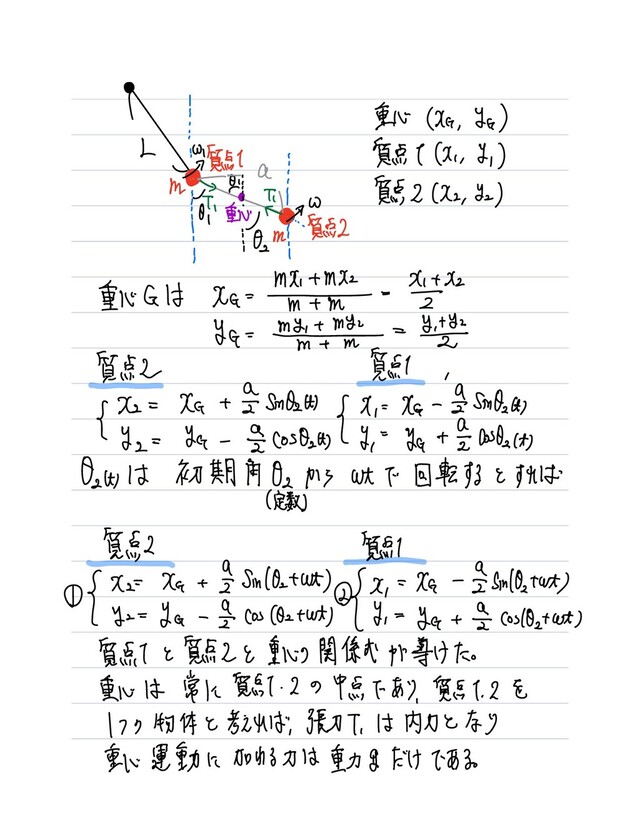 L
m
ω₁
質点1
T₁
θ₁
θ₁
重心
a
θ₂
T₁
m
ω
質点2
重心 (x_G, y_G)
質点1 (x₁, y₁)
質点2 (x₂, y₂)
重心Gは x_G = (mx₁+mx₂)/(m+m) = (x₁+x₂)/2
y_G = (my₁+my₂)/(m+m) = (y₁+y₂)/2
質点2 質点1
{ x₂ = x_G + a/2 sinθ₂(t) { x₁ = x_G - a/2 sinθ₂(t)
y₂ = y_G - a/2 cosθ₂(t) y₁ = y_G + a/2 cosθ₂(t)
θ₂(t)は 初期角θ₂から ωtで回転するとすれば
(定数)
質点2 質点1
① { x₂ = x_G + a/2 sin(θ₂+ωt) ② { x₁ = x_G - a/2 sin(θ₂+ωt)
y₂ = y_G - a/2 cos(θ₂+ωt) y₁ = y_G + a/2 cos(θ₂+ωt)
質点1と質点2と重心の関係式が導けた。
重心は常に質点1.2の中点であり、質点1.2を
1つの物体と考えれば、張力T₁は内力となり
重心運動に加わる力は重力gだけである。